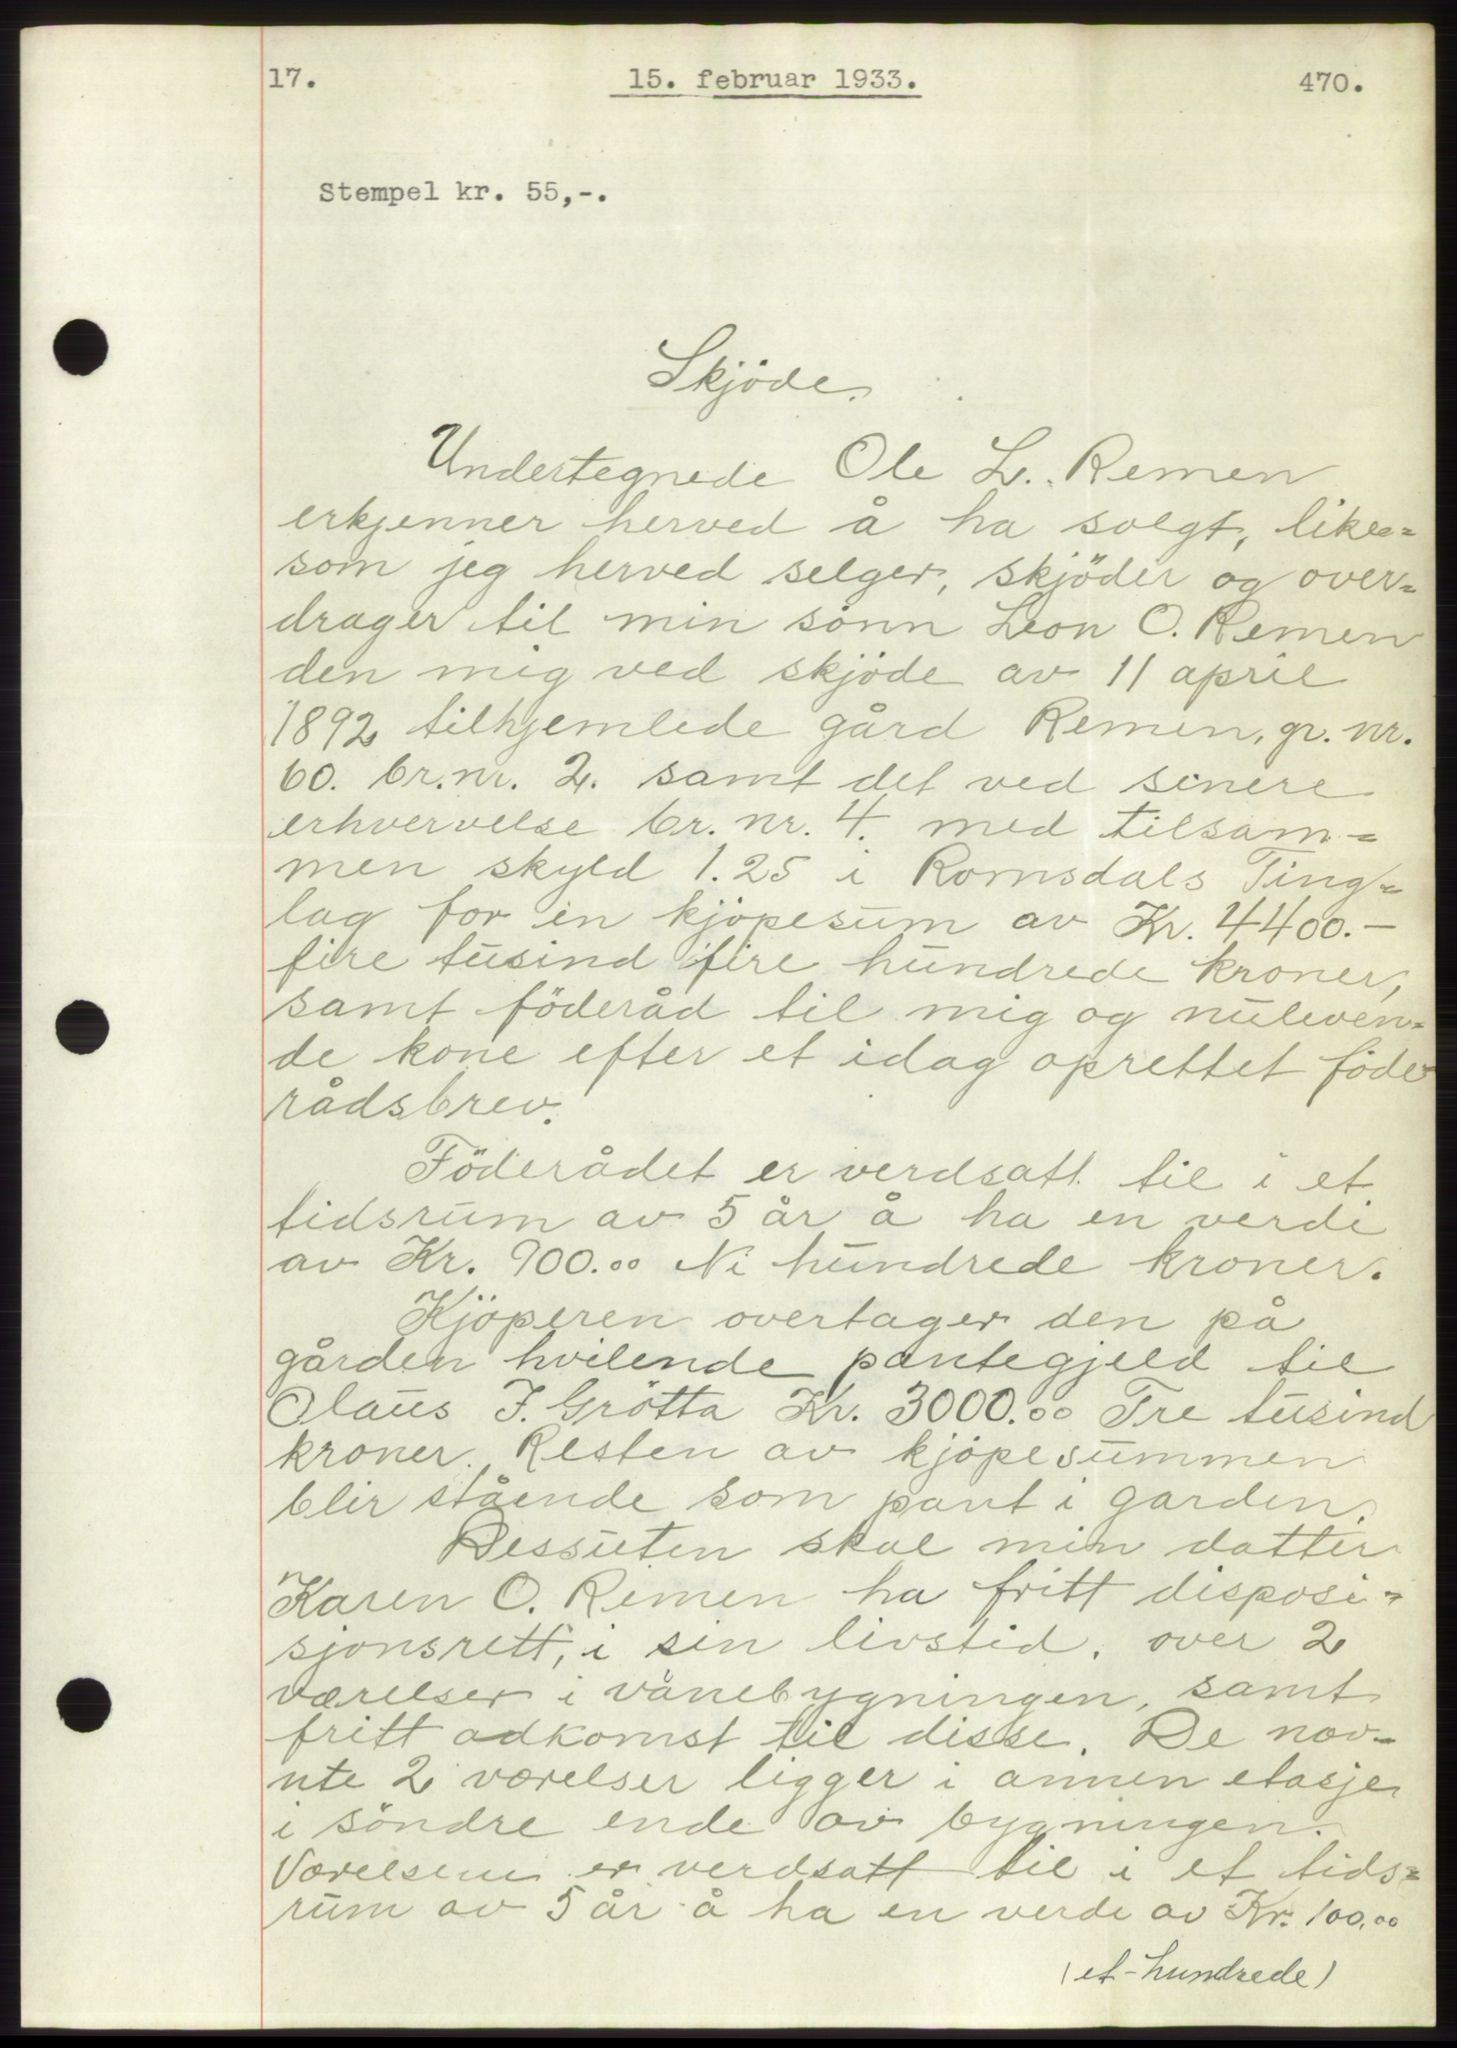 17. 15. februar 1933. 470.
Stempel kr. 55,-.
Skjöde.
Undertegnede Ole L. Remen
erkjenner herved å ha solgt, like=
som jeg herved selger, skjöder og over=
drager til min sönn Leon O. Remen
den mig ved skjöde av 11 april
1892 tilhjemlede gård Remen, gr. nr.
60. br. nr. 2. samt det ved senere
erhvervelse br. nr. 4. med tilsam=
men skyld 1.25 i Romsdals Ting=
lag for en kjöpesum av Kr. 4400.-
fire tusind fire hundrede kroner,
samt föderåd til mig og nuleven=
de kone efter et idag oprettet föde=
rådsbrev.
Föderådet er verdsatt til i et
tidsrum av 5 år å ha en verdi
av Kr. 900.00 Ni hundrede kroner.
Kjöperen overtager den på
gården hvilende pantegjeld til
Olaus J. Grötta Kr. 3000.00 Tre tusind
kroner. Resten av kjöpesummen
blir stående som pant i garden.
Dessuten skal min datter
Karen O. Remen ha fritt disposi=
sjonsrett, i sin livstid, over 2
værelser i vånebygningen, samt
fritt adkomst til disse. De næv=
nte 2 værelser ligger i annen etasje
i söndre ende av bygningen.
Værelsene er verdsatt til i et tids=
rum av 5 år å ha en verde av Kr. 100.00
(et-hundrede)